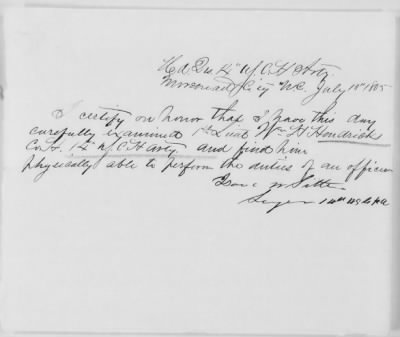 Hd Qrs 14" U.S.C.H Arty.
Morehead City N.C. July 18" 1865
I certify on honor that I have this day
carefully examined 1st Lieut Wm H Hendrick
Co. H. 14" U.S.C H Arty. and find him
physically able to perform the duties of an officer
Isaac W
Surgeon 14th USCHA